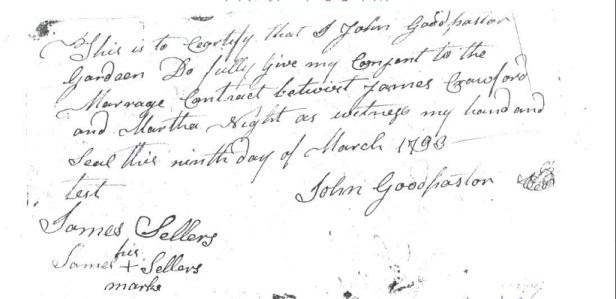 This is to Certify that I John Goodpastor
Gardeen Do fully Give my Consent to the
Marrage Contract betwixt James Crawford
and Martha Night as witness my hand and
Seal this ninth day of March 1793
test John Goodpastor
James Sellers
his
James + Sellers
mark